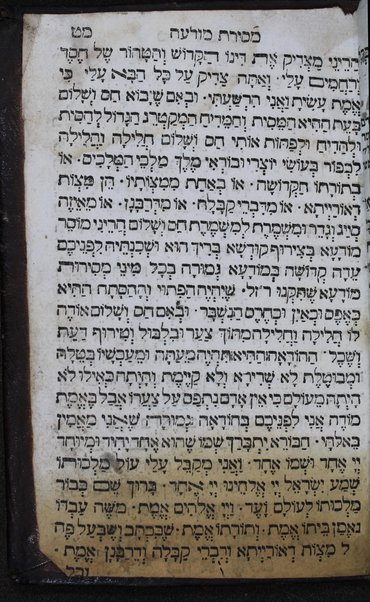 מסירת מודעה מט
הריני מצדיק את דינו הקדוש והטהור של חסד
ורחמים עלי׳ ואתה צדיק על כל הבא עלי׳ כי
אמת עשית ואני הרשעתי׳ ובאם שיבוא חס ושלום
בעת ההיא המסית והמדיח המקטרג הגדול להסית
ולהדיח ולפתות אותי חס ושלום חלילה וחלילה
לכפור בעושי יוצרי ובוראי מלך מלכי המלכים׳ או
בתורתו הקדושה׳ או באחת ממצותיו׳ הן מצות
דאורייתא׳ או מדברי קבלה׳ או מדרבנן׳ או מאיזה
סייג וגדר ומשמרת למשמרת חס ושלום הריני מוסר
מודעא בצירוף קודשא בריך הוא ושכנתיה לפניכם
עדה קדושה במודעא גמורה בכל מיני מסירות
מודעא שתקנו רז״ל׳ שיהיה הפתוי וההסתה ההיא
כאפס וכאין וכחרס הנשבר׳ ובאם חס ושלום אודה
לו חלילה וחלילה מתוך צער ובלבול וטירוף דעת
ושכל׳ ההודאה ההיא תהיה מעתה ומעכשיו בטלה
ומבוטלת לא שרירא ולא קיימת והיתה כאילו לא
היתה מעולם כי אין אדם נתפס על צערו אבל באמת
מודה אני לפניכם בהודאה גמורה שאני מאמין
באלהי׳ הבורא יתברך שמו שהוא אחד יחיד ומיוחד
יי אחד ושמו אחד׳ ואני מקבל עלי עול מלכותו
שמע ישראל יי אלהינו יי אחד׳ ברוך שם כבוד
מלכותו לעולם ועד׳ ויי אלהים אמת׳ משה עבדו
נאמן ביתו אמת׳ ותורתו אמת׳ שבכתב ושבעל פה
מצות דאורייתא ודברי קבלה ודרבנן אמת׳
וכל